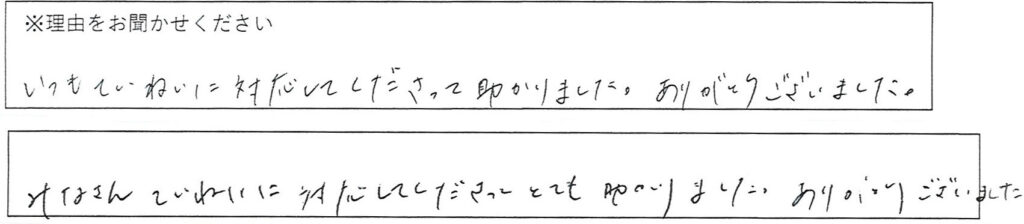 ※理由をお聞かせください
いつもていねいに対応してくださって助かりました。ありがとうございました。
みなさんていねいに対応してくださってとても助かりました。ありがとうございました